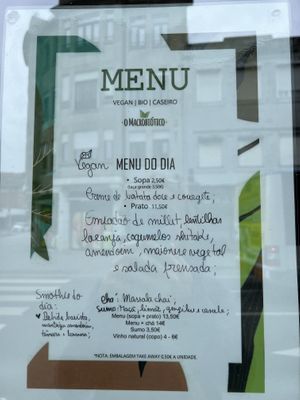 MENU
VEGAN | BIO | CASEIRO
O MACROBIÓTICO
Vegan MENU DO DIA
• Sopa 2,50€
(taça grande 3,50€)
Creme de batata doce e courgete;
• Prato 11,50€
Empadão de millet, lentilhas
laranja, cogumelos shitake,
amendoim, maionese vegetal
e salada prensada;
Smoothie do
dia:
Bebida
chá: Massala chai;
Sumo: Maçã, limão, gengibre e canela;
Menu (sopa + prato) 13,50€
Menu + chá 14€
Sumo 3,50€
Vinho natural (copo) 4 - 6€
*NOTA: EMBALAGEM TAKE AWAY 0,50€ A UNIDADE.